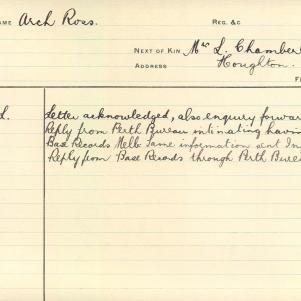 AME Arch Ross. REG. &C
NEXT OF KIN Mrs L. Chamberl
ADDRESS Houghton.
F
L. Letter acknowledged, also enquiry forwar
Reply from Perth Bureau intimating havin
Base Records Melb. Same information sent In
Reply from Base Records through Perth Burea